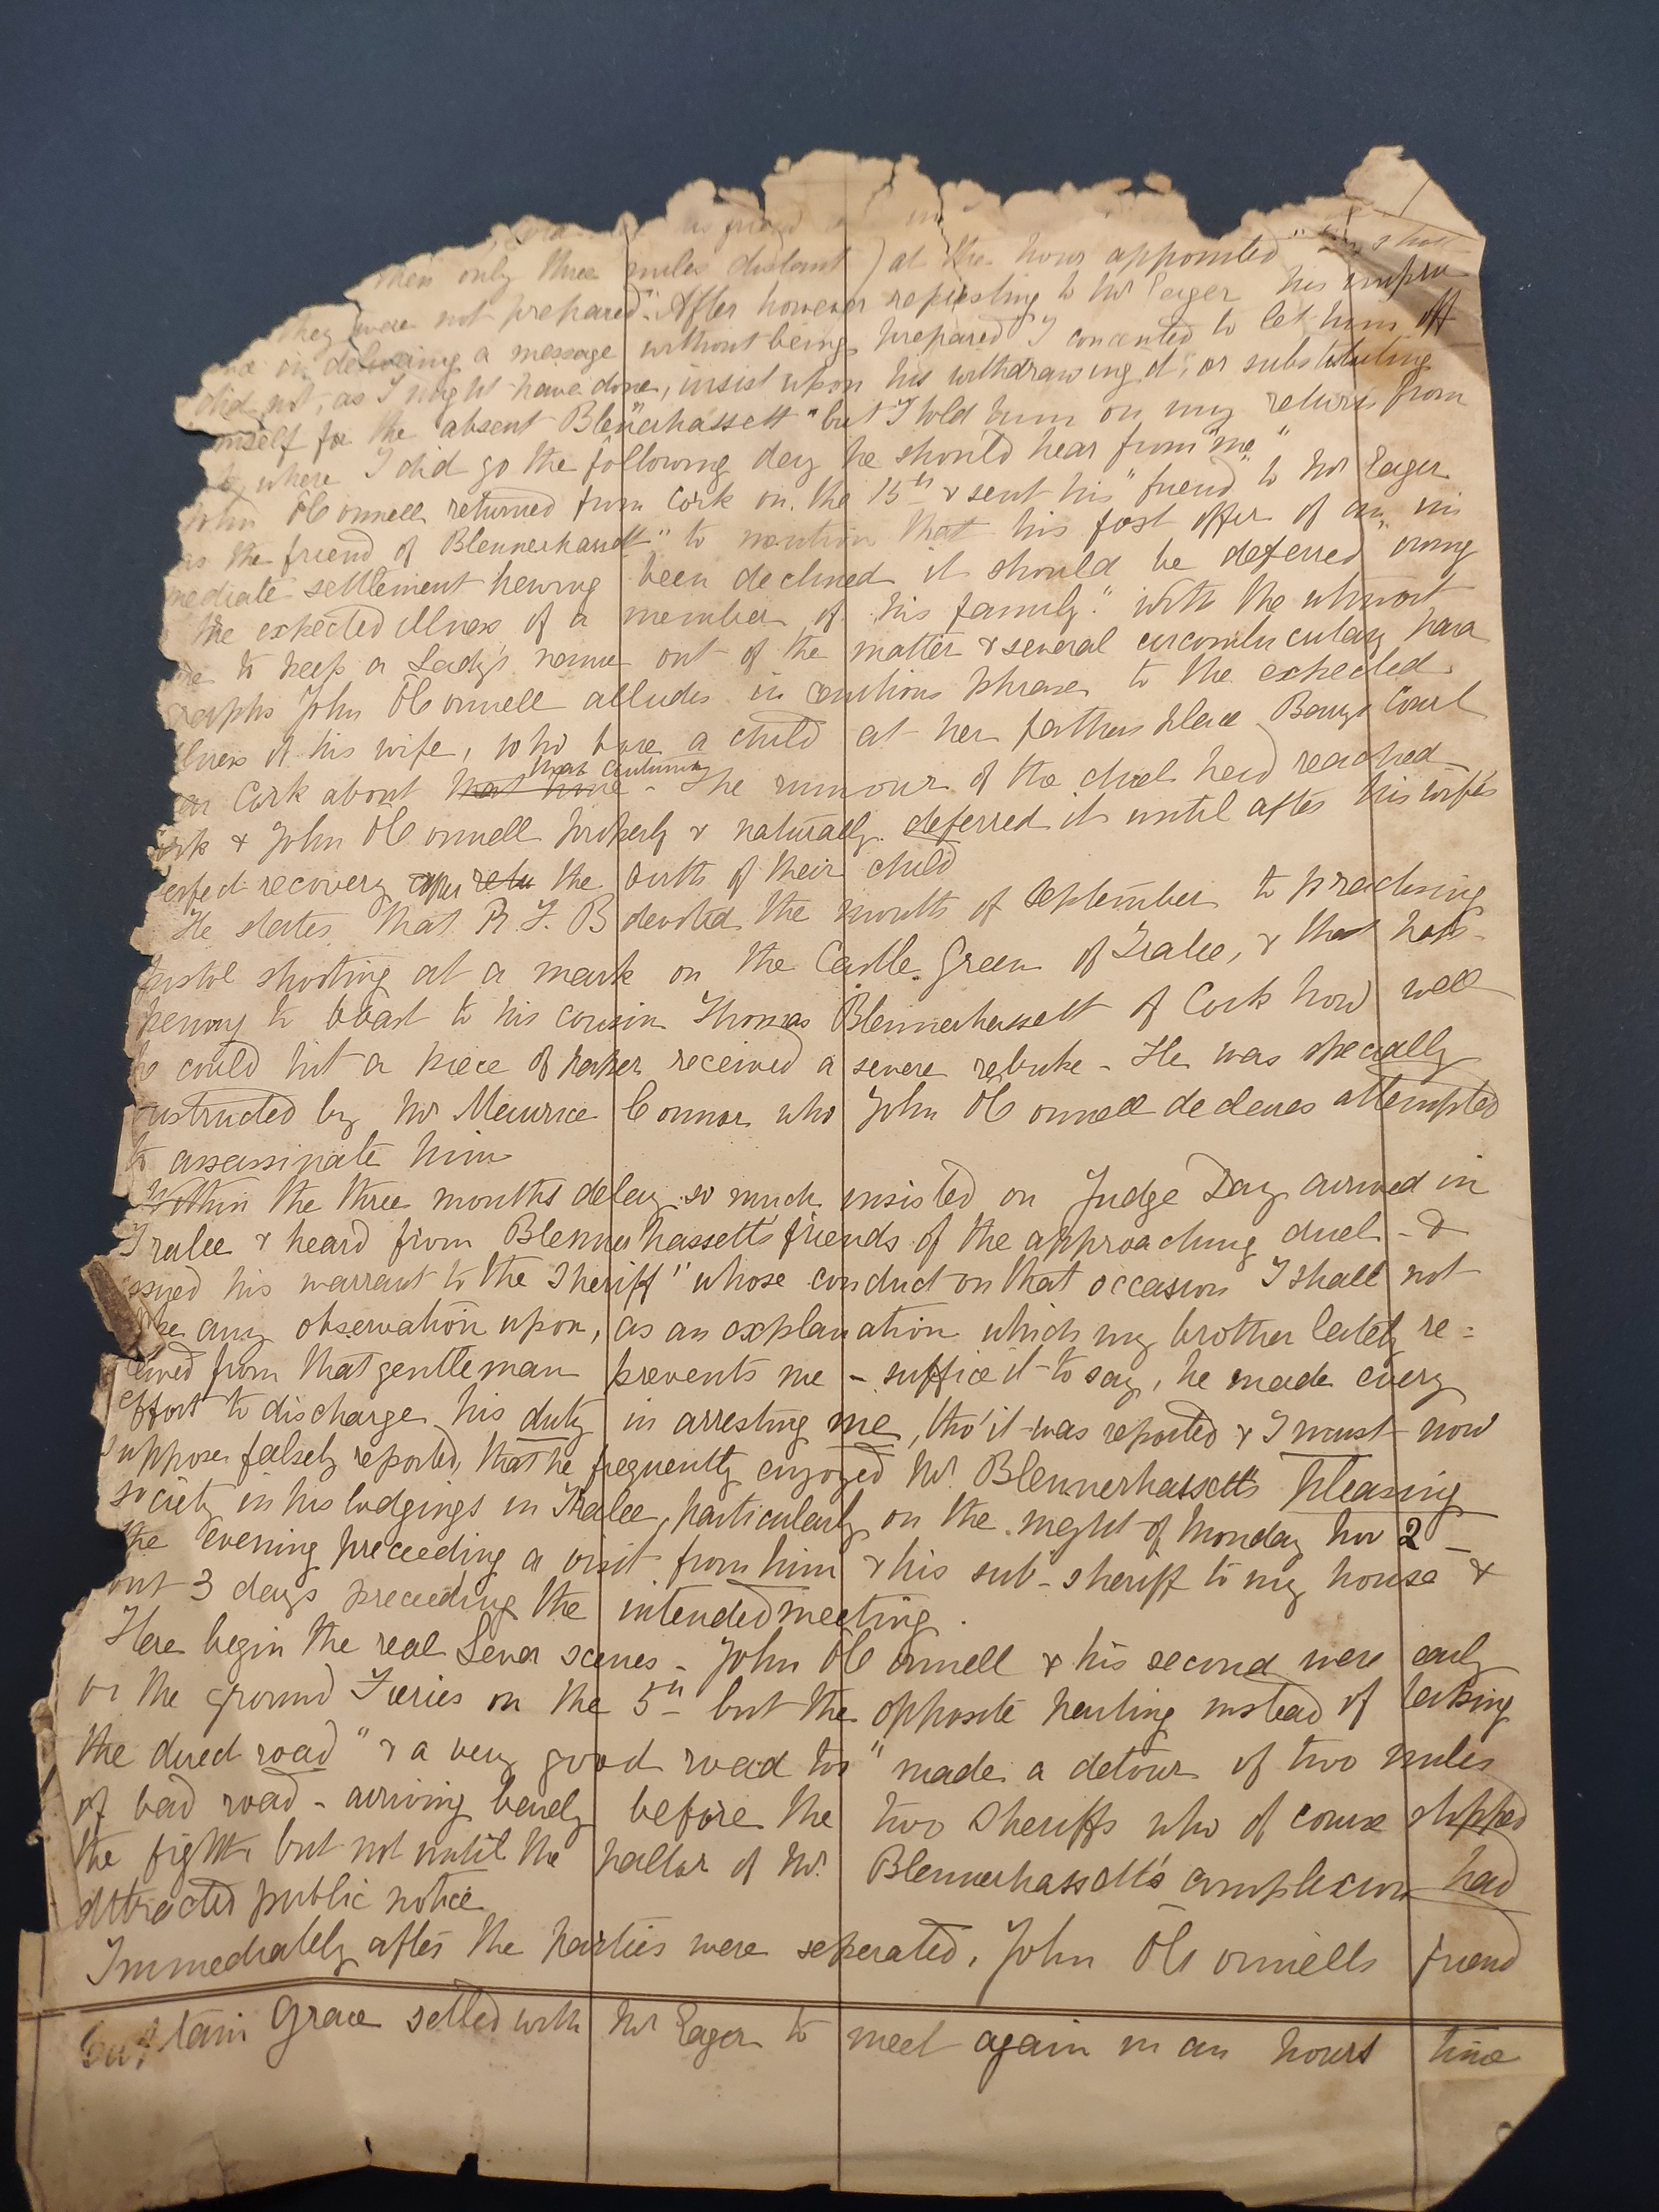 as friend
then only three miles distant) at the hour appointed "they
they were not prepared". After however representing to Mr Eager his impru
in delivering a message without being prepared I consented to let him off
did not, as I might have done, insist upon his withdrawing it, or substituting
mself for the absent Blennerhassett "but I told him on my return from
where I did go the following day he should hear from me"
John O'Connell returned from Cork on the 15th & sent his "friend" to Mr Eager
as the friend of Blennerhassett" to mention that his fast offer of an "im
mediate settlement having been declined it should be deferred owing
the expected illness of a member of his family." With the utmost
to keep a Lady's name out of the matter & several circumlocutary para
graphs John O'Connell alludes in cautious phrases to the expected
llness of his wife, who bore a child at her fathers place Barry's Court
Cork about that time that autumn - The rumour of the duel had reached
ork & John O'Connell properly & naturally deferred it until after his wife's
erfect recovery after the birth of their child
He states that R. F. B devoted the month of September to practising
pistol shooting at a mark on the Castle Green of Tralee, & that hap-
pening to boast to his cousin Thomas Blennerhassett of Cork how well
he could hit a piece of paper received a severe rebuke - He was specially
nstructed by Mr Maurice Connor who John O'Connell declares attempted
to assassinate him
Within the three months delay so much insisted on Judge Day arrived in
Tralee & heard from Blennerhassett's friends of the approaching duel - &
ssued his warrant to the Sheriff "whose conduct on that occasion I shall not
ke any observation upon, as an explanation which my brother lately re=
ceived from that gentleman prevents me - suffice it to say, he made every
effort to discharge his duty in arresting me, tho' it was reported & I must now
suppose falsely reported, that he frequently enjoyed Mr Blennerhassetts pleasing
society in his lodgings in Tralee, particularly on the night of Monday Nov 2 -
the evening preceeding a visit from him & his sub-sheriff to my house &
but 3 days preceeding the intended meeting.
Here begin the real Lever scenes - John O'Connell & his second were early
on the ground Fieries on the 5th but the opposite parting instead of taking
the direct road "& a very good road too" made a detour of two miles
of bad road - arriving barely before the two Sheriffs who of course stopped
the fight but not until the pallor of Mr Blennerhassett's complexion had
attracted public notice
Immediately after the parties were seperated, John O'Connells friend
Captain Grace settled with Mr Eager to meet again in an hours time